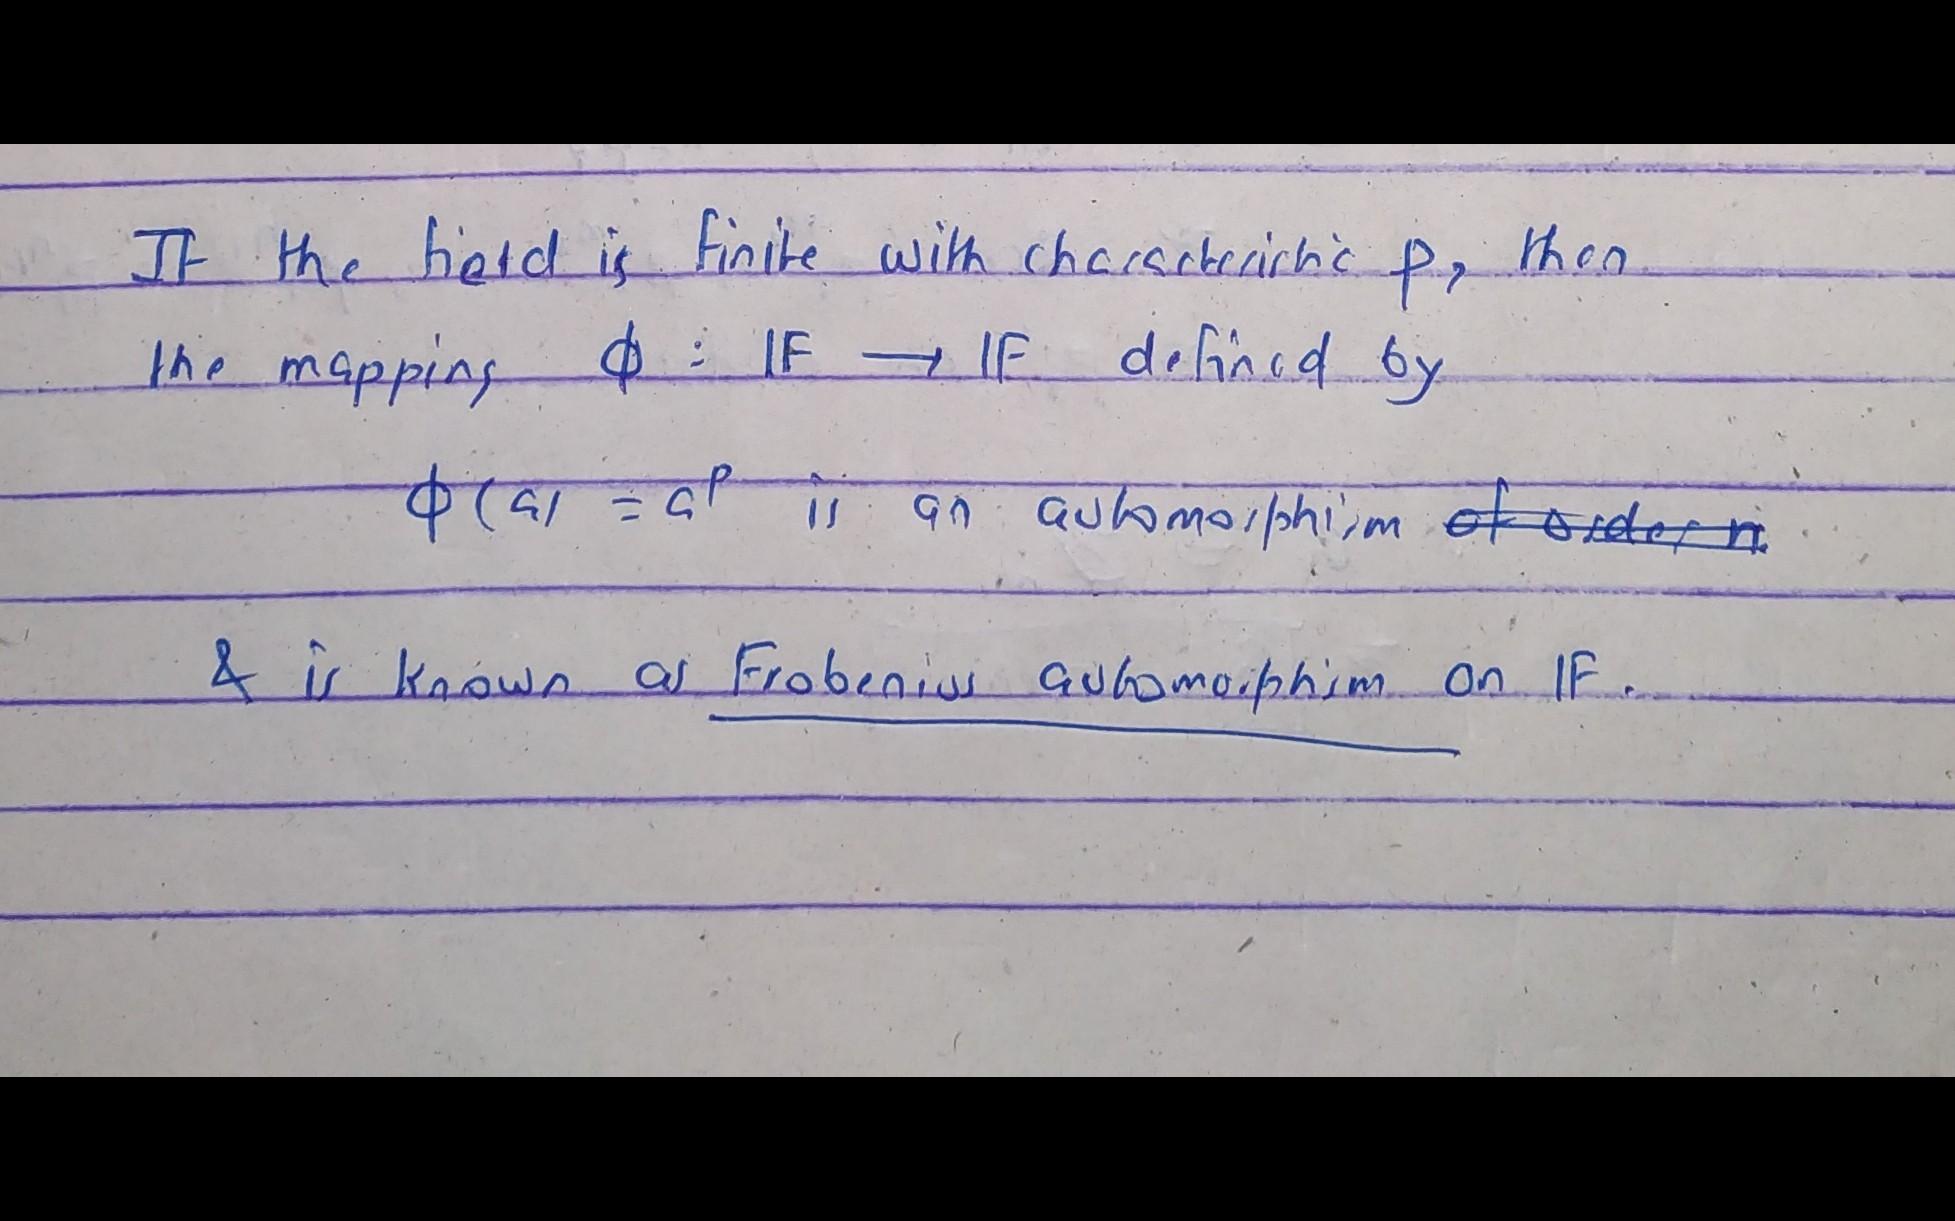 If the field is finite with characteristic p, then
the mapping ϕ : 𝔽 → 𝔽 defined by
ϕ(a) = a^p is an automorphism ~~of order n.~~
& is known as Frobenius automorphism on 𝔽.